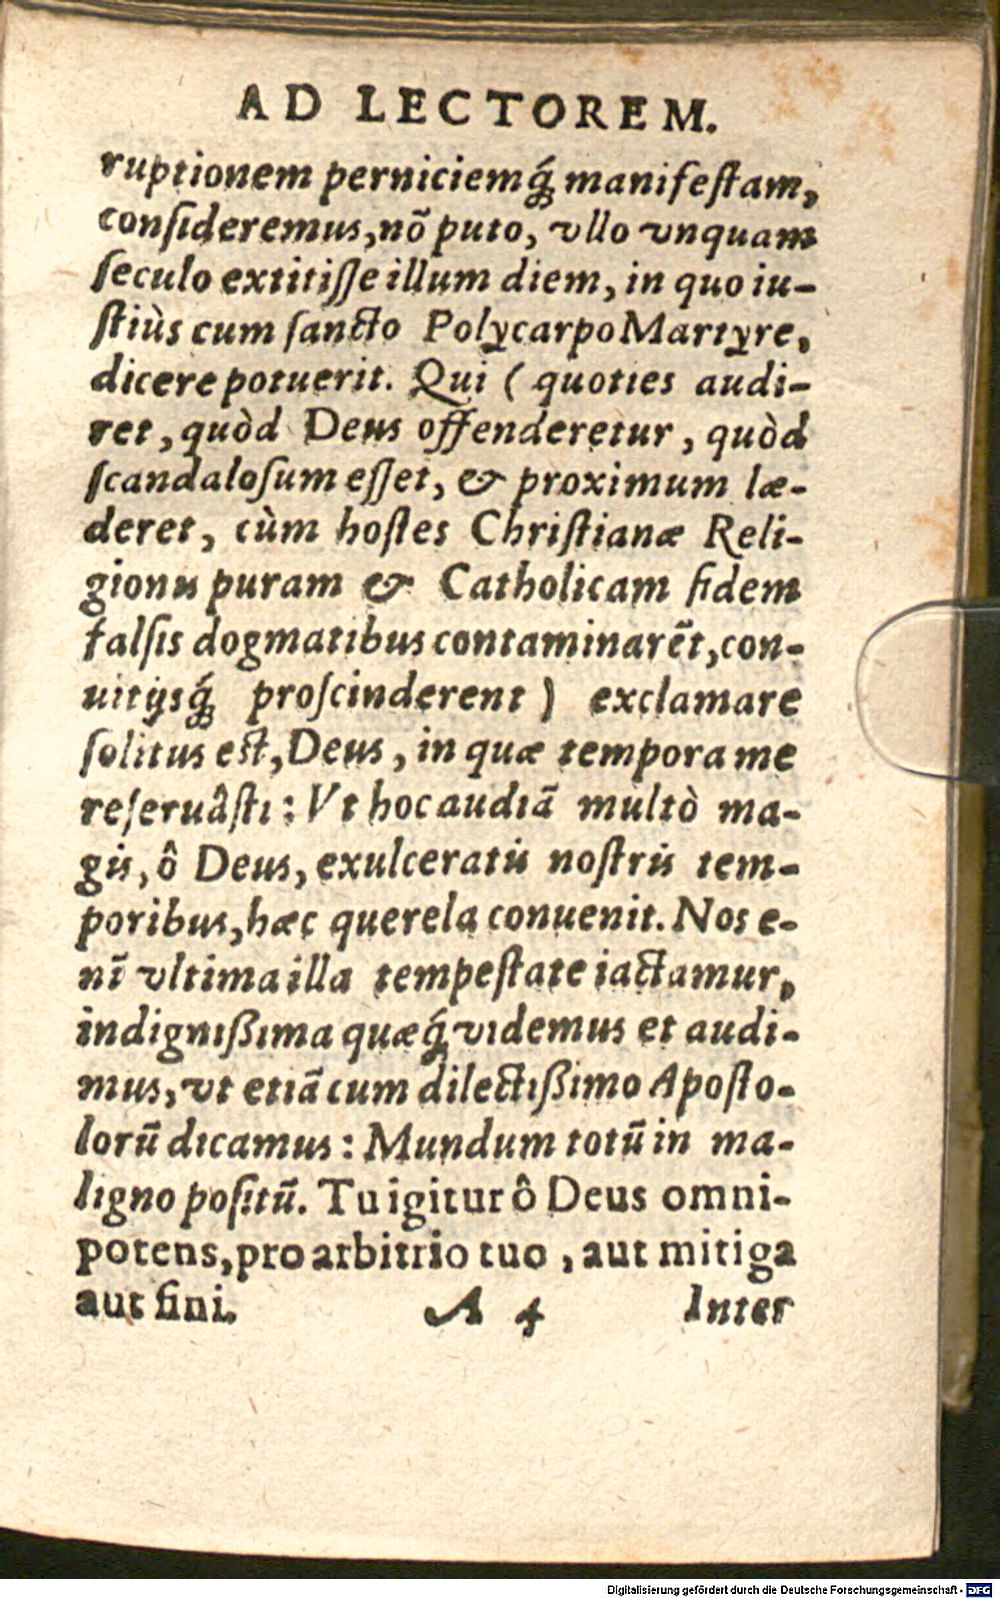 AD LECTOREM.
ruptionem perniciemq́; manifeſtam,
conſideremus, nõ puto, vllo vnquam
ſeculo extitiſſe illum diem, in quo iu-
ſtiùs cum ſancto Polycarpo Martyre,
dicere potuerit. Qui ( quoties audi-
ret, quòd Deus offenderetur, quòd
ſcandaloſum eſſet, & proximum læ-
deret, cùm hoſtes Chriſtianæ Reli-
gionis puram & Catholicam fidem
falſis dogmatibus contaminarẽt, con-
uitijsq́; proſcinderent ) exclamare
ſolitus eſt, Deus, in quæ tempora me
reſeruâſti : Vt hoc audiã multò ma-
gis, ô Deus, exulceratis noſtris tem-
poribus, hæc querela conuenit. Nos e-
nĩ vltima illa tempeſtate iactamur,
indignißima quæq́; videmus et audi-
mus, vt etiã cum dilectißimo Apoſto-
lorũ dicamus : Mundum totũ in ma-
ligno poſitũ. Tu igitur ô Deus omni-
potens, pro arbitrio tuo, aut mitiga
aut fini. A 4 Inter
Digitalisierung gefördert durch die Deutsche Forschungsgemeinschaft - DFG